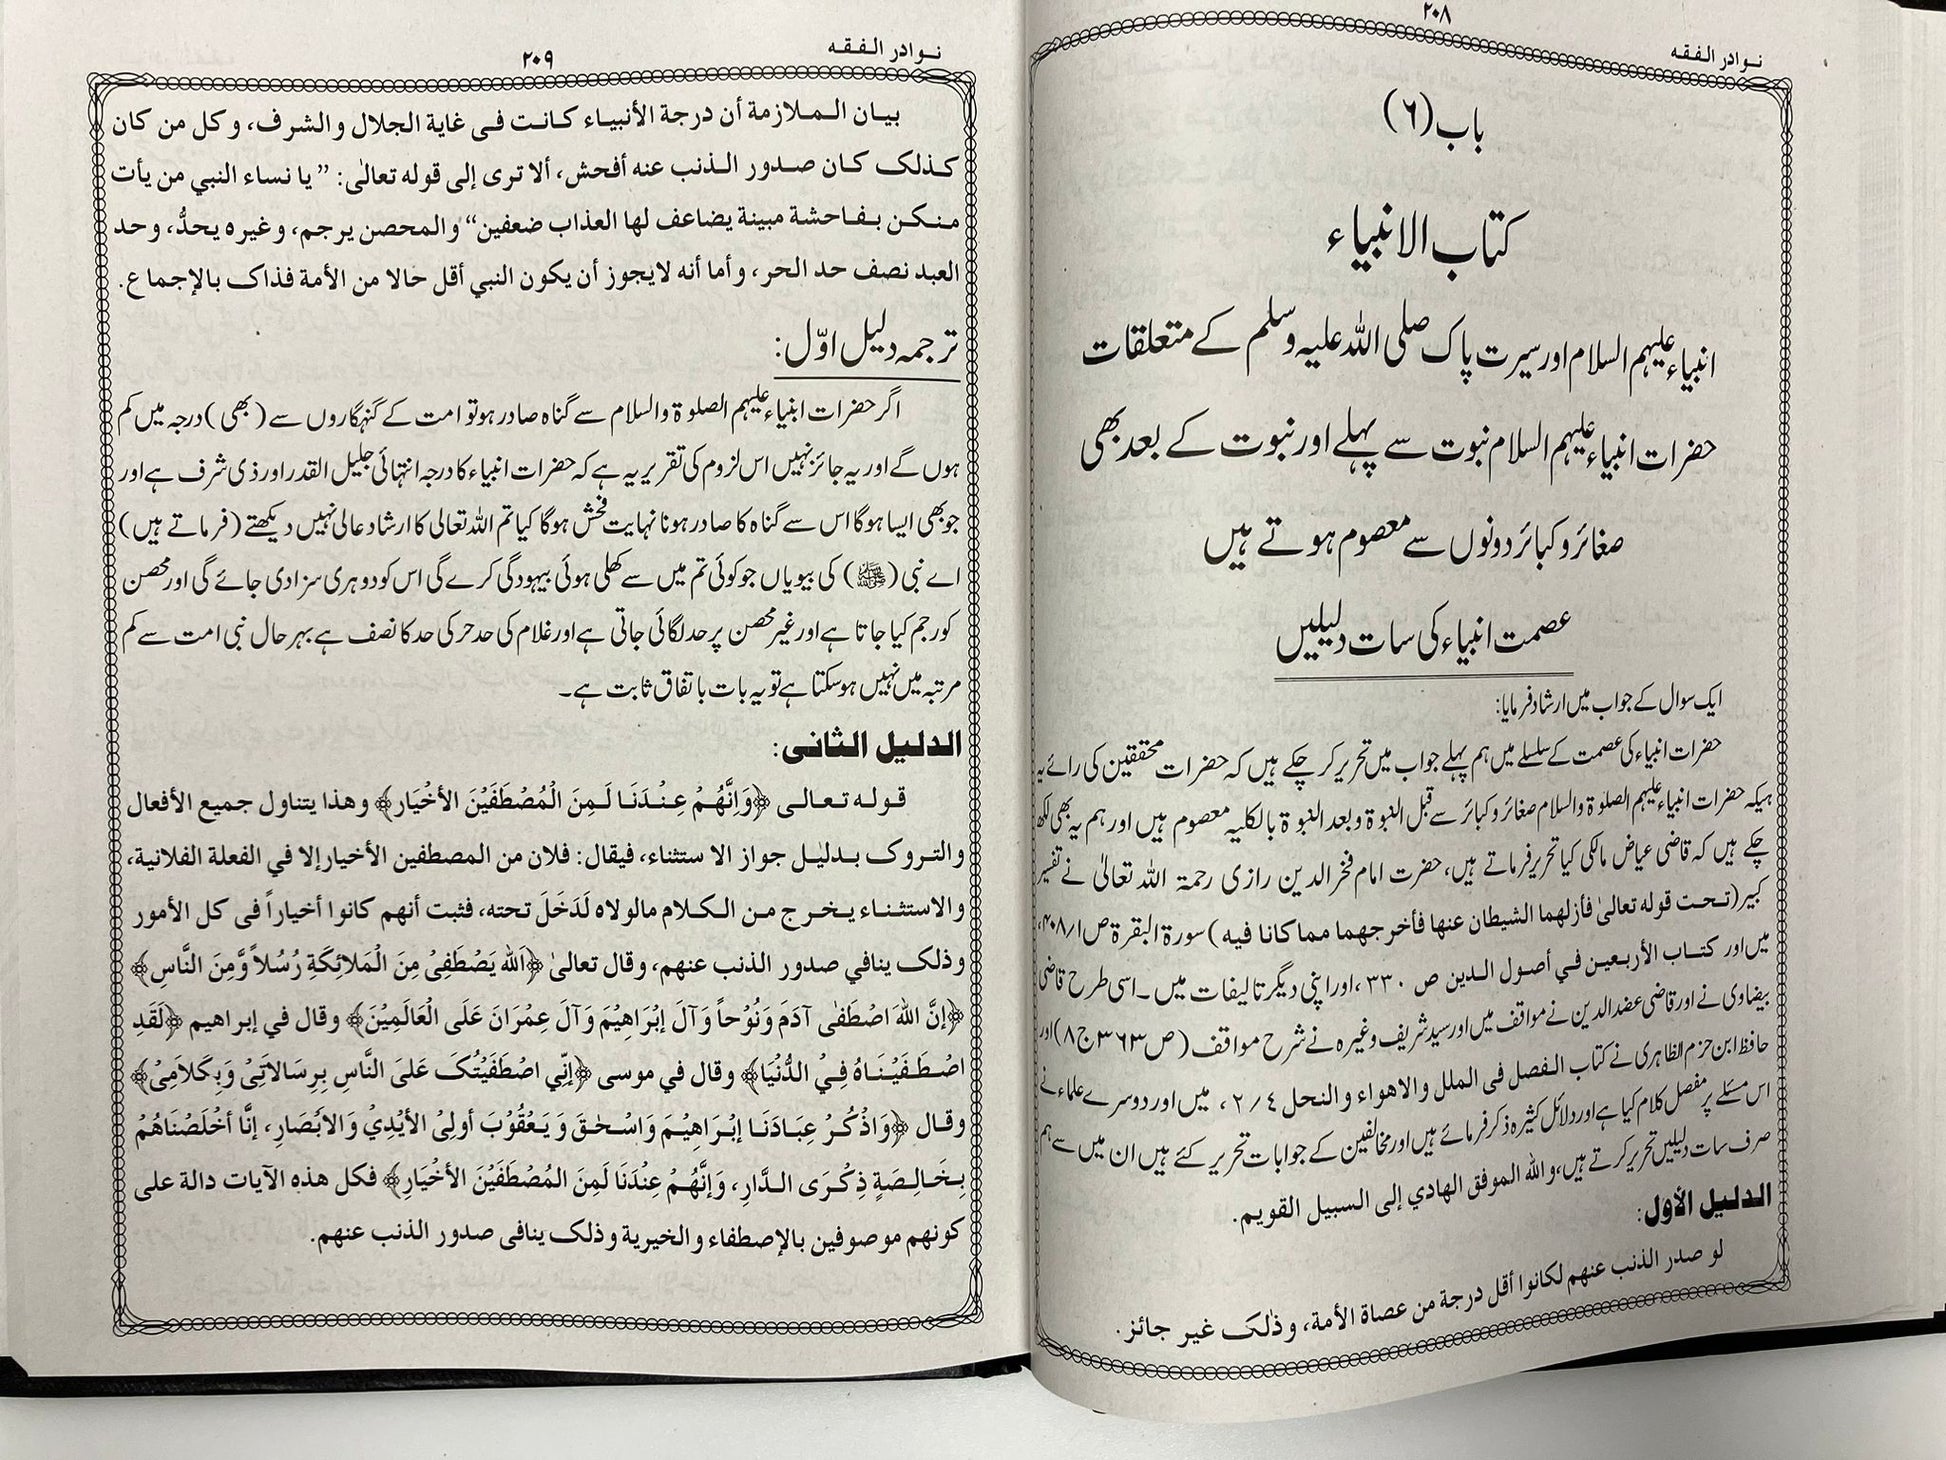 ٢٠٨
نوادر الفقه
باب (٦)
کتاب الانبیاء
انبیاء علیہم السلام اور سیرت پاک صلی اللہ علیہ وسلم کے متعلقات
حضرات انبیاء علیہم السلام نبوت سے پہلے اور نبوت کے بعد بھی
صغائر و کبائر دونوں سے معصوم ہوتے ہیں
عصمت انبیاء کی سات دلیلیں
ایک سوال کے جواب میں ارشاد فرمایا:
حضرات انبیاء کی عصمت کے سلسلے میں ہم پہلے جواب میں تحریر کر چکے ہیں کہ حضرات محققین کی رائے یہ
ہیکہ حضرات انبیاء علیہم الصلوٰۃ والسلام صغائر و کبائر سے قبل النبوۃ وبعد النبوۃ بالکلیہ معصوم ہیں اور ہم یہ بھی لکھ
چکے ہیں کہ قاضی عیاض مالکی کیا تحریر فرماتے ہیں، حضرت امام فخر الدین رازی رحمۃ اللہ تعالیٰ نے تفسیر
کبیر (تحت قوله تعالیٰ فأزلهما الشيطان عنها فأخرجهما مما كانا فيه) سورۃ البقرۃ ص۱/۴۰۸،
میں اور كتاب الأربعين في أصول الدين ص ٣٣٠، اور اپنی دیگر تالیفات میں۔ اسی طرح قاضی
بیضاوی نے اور قاضی عضد الدین نے مواقف میں اور سید شریف وغیرہ نے شرح مواقف (ص۳۶۳ج۸) اور
حافظ ابن حزم الظاہری نے کتاب الفصل فی الملل والاهواء والنحل ٢/٤، میں اور دوسرے علماء نے
اس مسئلے پر مفصل کلام کیا ہے اور دلائل کثیرہ ذکر فرمائے ہیں اور مخالفین کے جوابات تحریر کئے ہیں ان میں سے ہم
صرف سات دلیلیں تحریر کرتے ہیں، والله الموفق الهادي إلى السبيل القويم.
الدليل الأول:
لو صدر الذنب عنهم لكانوا أقل درجة من عصاة الأمة، وذٰلك غير جائز.
نوادر الفقه
٢٠٩
بيان الملازمة أن درجة الأنبياء كانت فى غاية الجلال والشرف، وكل من كان
كذلك كان صدور الذنب عنه أفحش، ألا ترى إلى قوله تعالىٰ: ”يا نساء النبي من يأت
منكن بفاحشة مبينة يضاعف لها العذاب ضعفين“ والمحصن يرجم، وغيره يحدُّ، وحد
العبد نصف حد الحر، وأما أنه لايجوز أن يكون النبي أقل حالا من الأمة فذاك بالإجماع.
ترجمہ دلیل اوّل:
اگر حضرات انبیاء علیہم الصلوۃ والسلام سے گناہ صادر ہو تو امت کے گنہگاروں سے (بھی) درجہ میں کم
ہوں گے اور یہ جائز نہیں اس لزوم کی تقریر یہ ہے کہ حضرات انبیاء کا درجہ انتہائی جلیل القدر اور ذی شرف ہے اور
جو بھی ایسا ہوگا اس سے گناہ کا صادر ہونا نہایت فحش ہوگا کیا تم اللہ تعالی کا ارشاد عالی نہیں دیکھتے (فرماتے ہیں)
اے نبی (ﷺ) کی بیویاں جو کوئی تم میں سے کھلی ہوئی بیہودگی کرے گی اس کو دوہری سزا دی جائے گی اور محصن
کو رجم کیا جاتا ہے اور غیر محصن پر حد لگائی جاتی ہے اور غلام کی حد حر کی حد کا نصف ہے بہر حال نبی امت سے کم
مرتبہ میں نہیں ہو سکتا ہے تو یہ بات با تفاق ثابت ہے۔
الدليل الثانى:
قوله تعالى ﴿وَاِنَّهُمْ عِنْدَنَا لَمِنَ الْمُصْطَفَيْنَ الأخْيَار﴾ وهذا يتناول جميع الأفعال
والتروك بدليل جواز الاستثناء، فيقال: فلان من المصطفين الأخيار إلا في الفعلة الفلانية،
والاستثناء يخرج من الكلام مالولاه لَدَخَلَ تحته، فثبت أنهم كانوا أخياراً فى كل الأمور
وذلك ينافي صدور الذنب عنهم، وقال تعالىٰ ﴿اَللهُ يَصْطَفِىْ مِنَ الْمَلائِكَةِ رُسُلاً وَّمِنَ النَّاسِ﴾
﴿إنَّ اللهَ اصْطَفٰى آدَمَ وَنُوْحاً وَآلَ إبْرَاهِيْمَ وَآلَ عِمْرَانَ عَلَى الْعَالَمِيْنَ﴾ وقال في إبراهيم ﴿لَقَدِ
اصْطَفَيْنَاهُ فِيْ الدُّنْيَا﴾ وقال في موسى ﴿إنِّي اصْطَفَيْتُكَ عَلَىَ النَّاسِ بِرِسَالَاتِىْ وَبِكَلَامِىْ﴾
وقال ﴿وَاذْكُرْ عِبَادَنَا إبْرَاهِيْمَ وَاسْحٰقَ وَيَعْقُوْبَ أولِىْ الأيْدِيْ وَالابْصَارِ، إنَّا أخْلَصْنَاهُمْ
بِخَالِصَةٍ ذِكْرَى الدَّارِ، وَإنَّهُمْ عِنْدَنَا لَمِنَ المُصْطَفَيْنَ الأخْيَارِ﴾ فكل هذه الآيات دالة على
كونهم موصوفين بالإصطفاء والخيرية وذلك ينافى صدور الذنب عنهم.